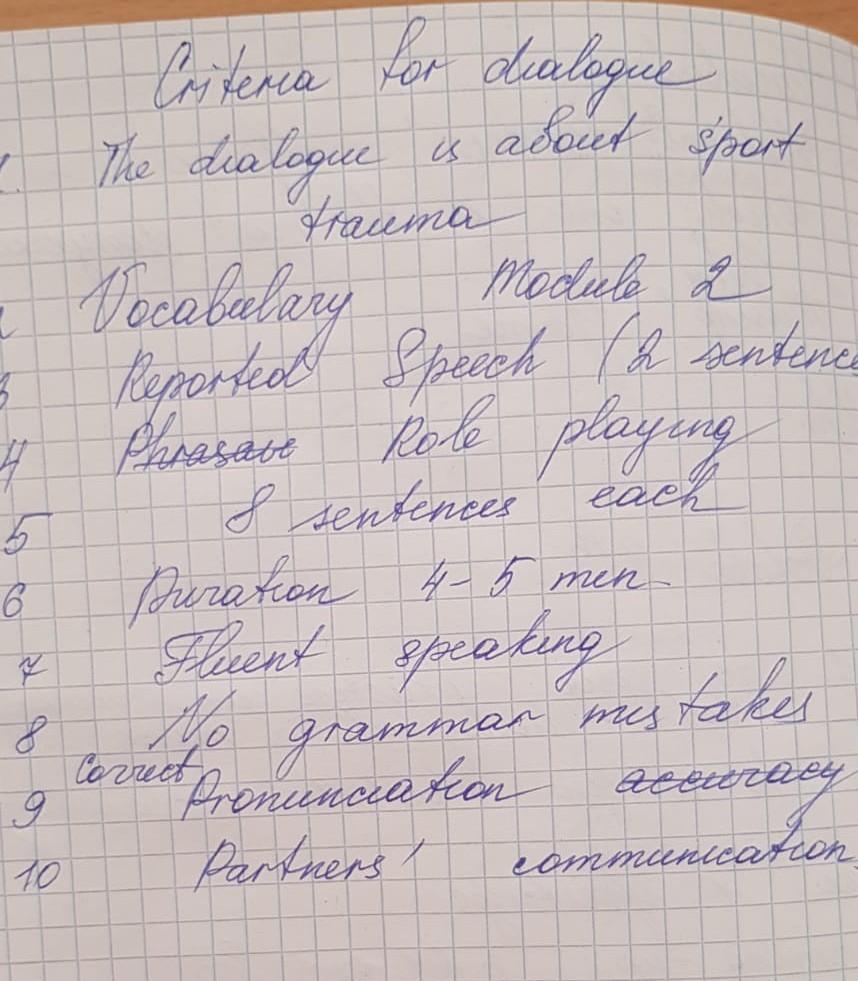 Criteria for dialogue
1. The dialogue is about sport
trauma
Vocabulary Module 2
3 Reported Speech (2 sentence
4 Role playing
5 8 sentences each
6 Duration 4-5 min
7 Fluent speaking
8 No grammar mistakes
9 Correct Pronunciation accuracy
10 Partners' communication